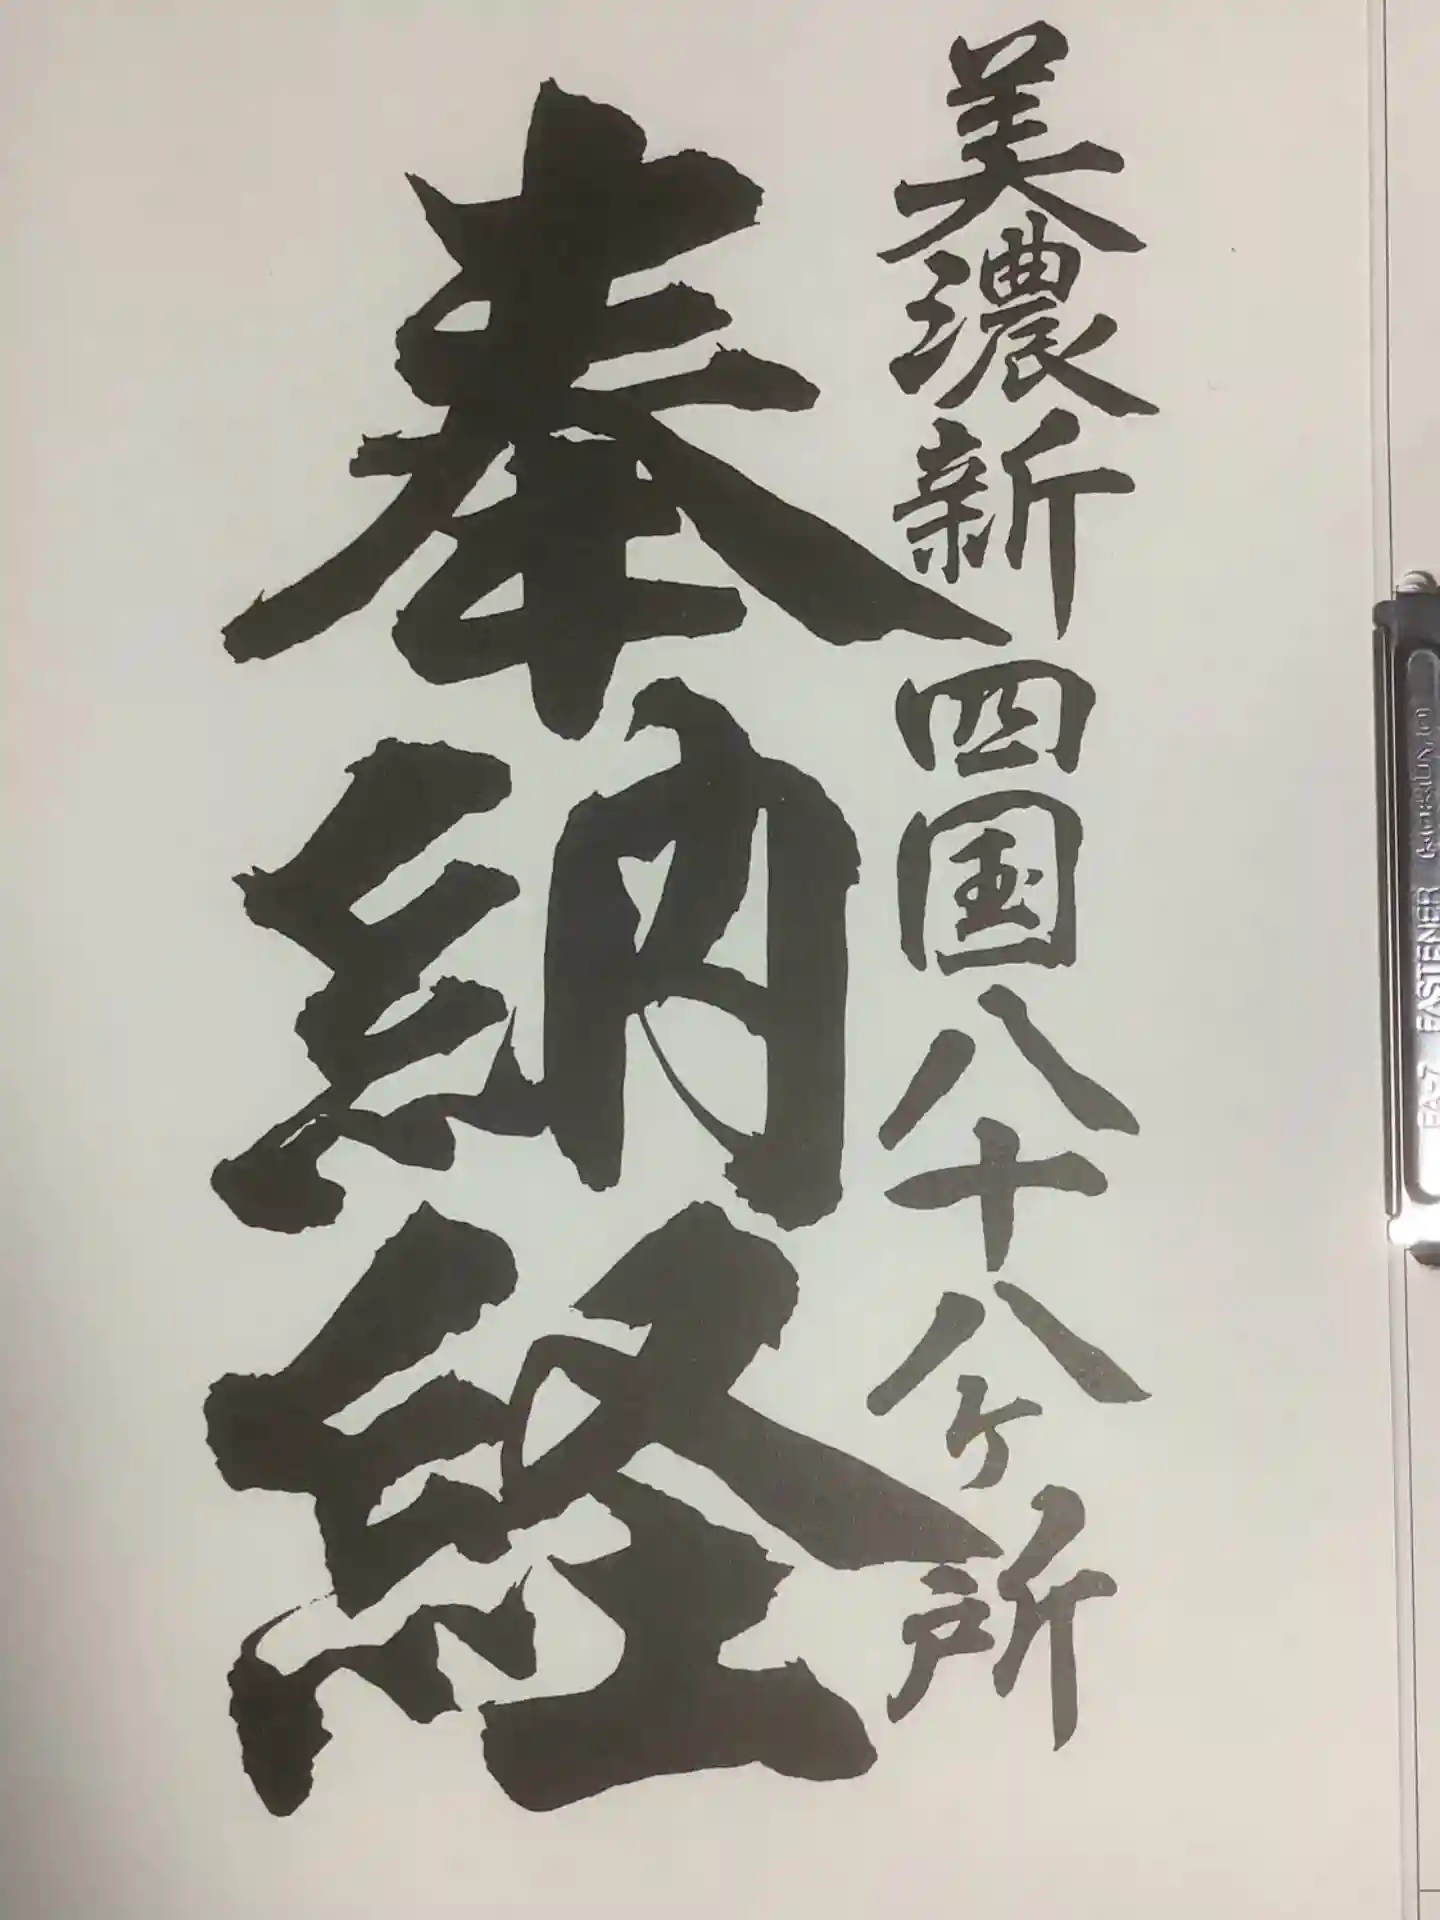 美濃新四国八十八ケ所
奉納経
FA-7 FASTENER KOKUYO